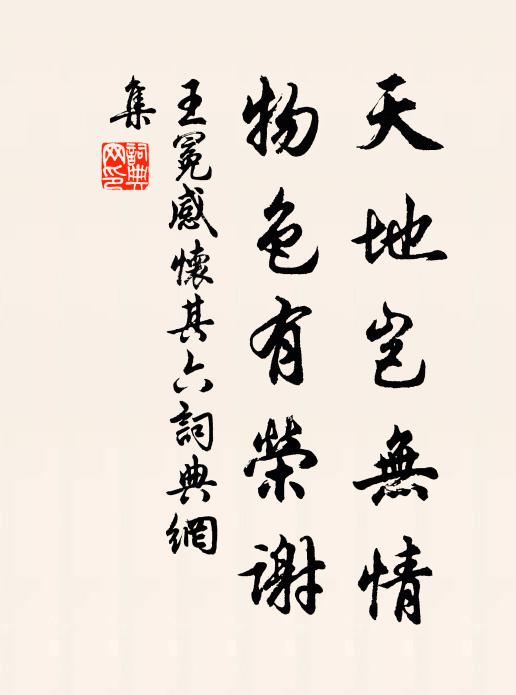 天地豈無情
物色有榮謝
王冕感懷其六詞典網
集
詞典
網印